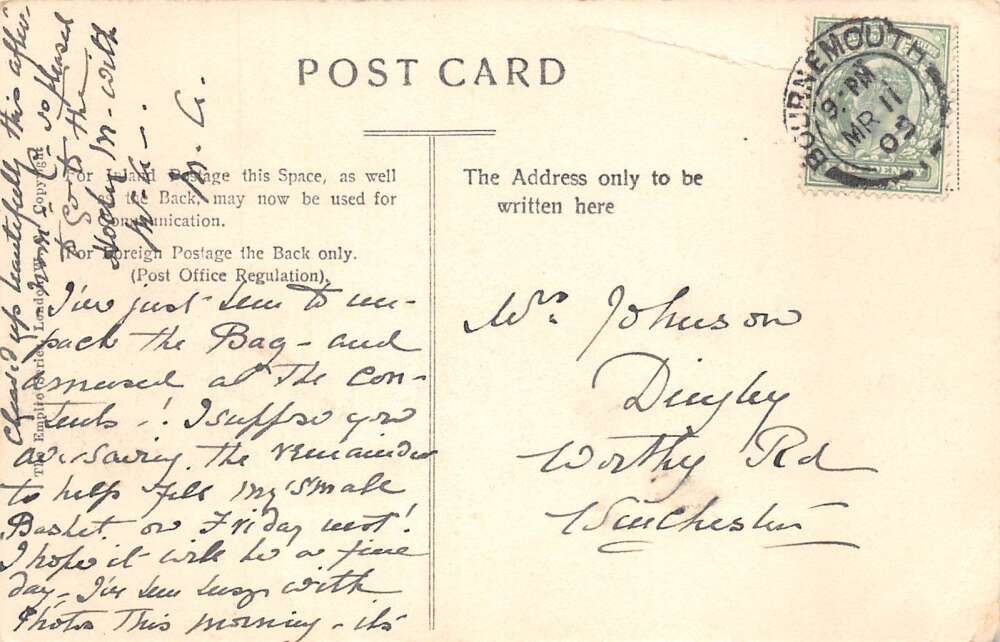 POST CARD
For Inland Postage this Space, as well
as the Back, may now be used for
Communication.
For Foreign Postage the Back only.
(Post Office Regulation).
The Address only to be
written here
BOURNEMOUTH
9- PM
MR 11
07
The Empire Series, London, W. Copyright
Mrs Johnson
Dingley
Worthy Rd
Winchester
I've just been to un-
pack the Bag - and
amused at the con-
tents -! I suppose you
are saving the remainder
to help fill my small
Basket on Friday next!
I hope it will be a fine
day - I've been busy with
Photos This morning - its
cleared up beautifully this after-
noon - so pleased
to the
with